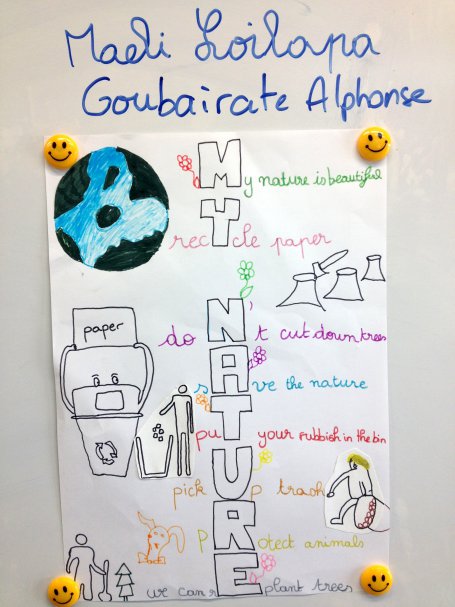 Maeli Loilapa
Goubairate Alphonse
My nature is beautiful
recYcle paper
doN't cut down trees
paper
sAve the nature
puT your rubbish in the bin
pick Up trash
pRotect animals
we can rEplant trees